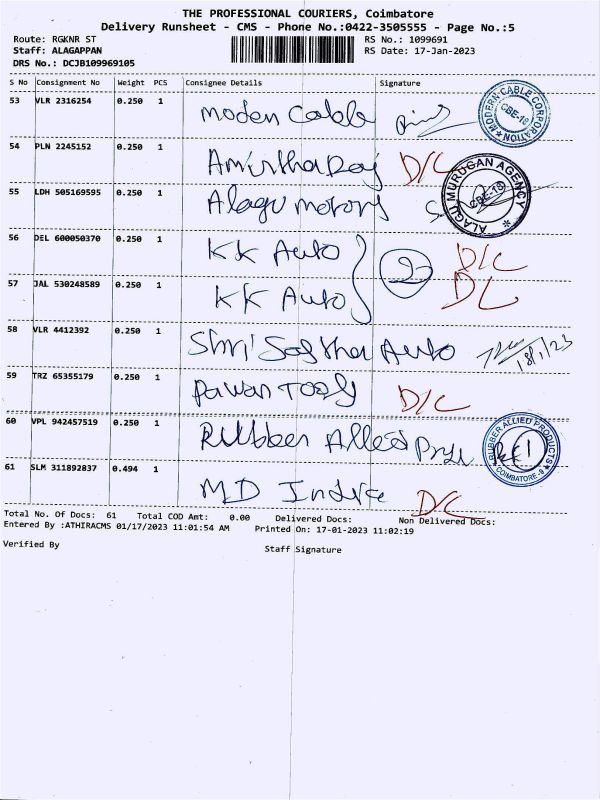 THE PROFESSIONAL COURIERS, Coimbatore
Delivery Runsheet - CMS - Phone No.:0422-3505555 - Page No.:5
Route: RGKNR ST RS No.: 1099691
Staff: ALAGAPPAN RS Date: 17-Jan-2023
DRS No.: DCJB109969105
S No Consignment No Weight PCS Consignee Details Signature
53 VLR 2316254 0.250 1 Moden Cable
MODERN CABLE CORPORATION CBE-18
54 PLN 2245152 0.250 1 Amirtha Raj D/C
55 LDH 505169595 0.250 1 Alagu motors
ALAGU MURUGAN AGENCY CBE-18
56 DEL 600050370 0.250 1 KK Auto 2 D/C
57 JAL 530248589 0.250 1 KK Auto D/C
58 VLR 4412392 0.250 1 Shri Sastha Auto 18/1/23
59 TRZ 65355179 0.250 1 Pawan Tools D/C
60 VPL 942457519 0.250 1 Rubber Allied
RUBBER ALLIED PRODUCTS COIMBATORE-9
61 SLM 311892837 0.494 1 MD Indra D/C
Total No. Of Docs: 61 Total COD Amt: 0.00 Delivered Docs: Non Delivered Docs:
Entered By :ATHIRACMS 01/17/2023 11:01:54 AM Printed On: 17-01-2023 11:02:19
Verified By Staff Signature